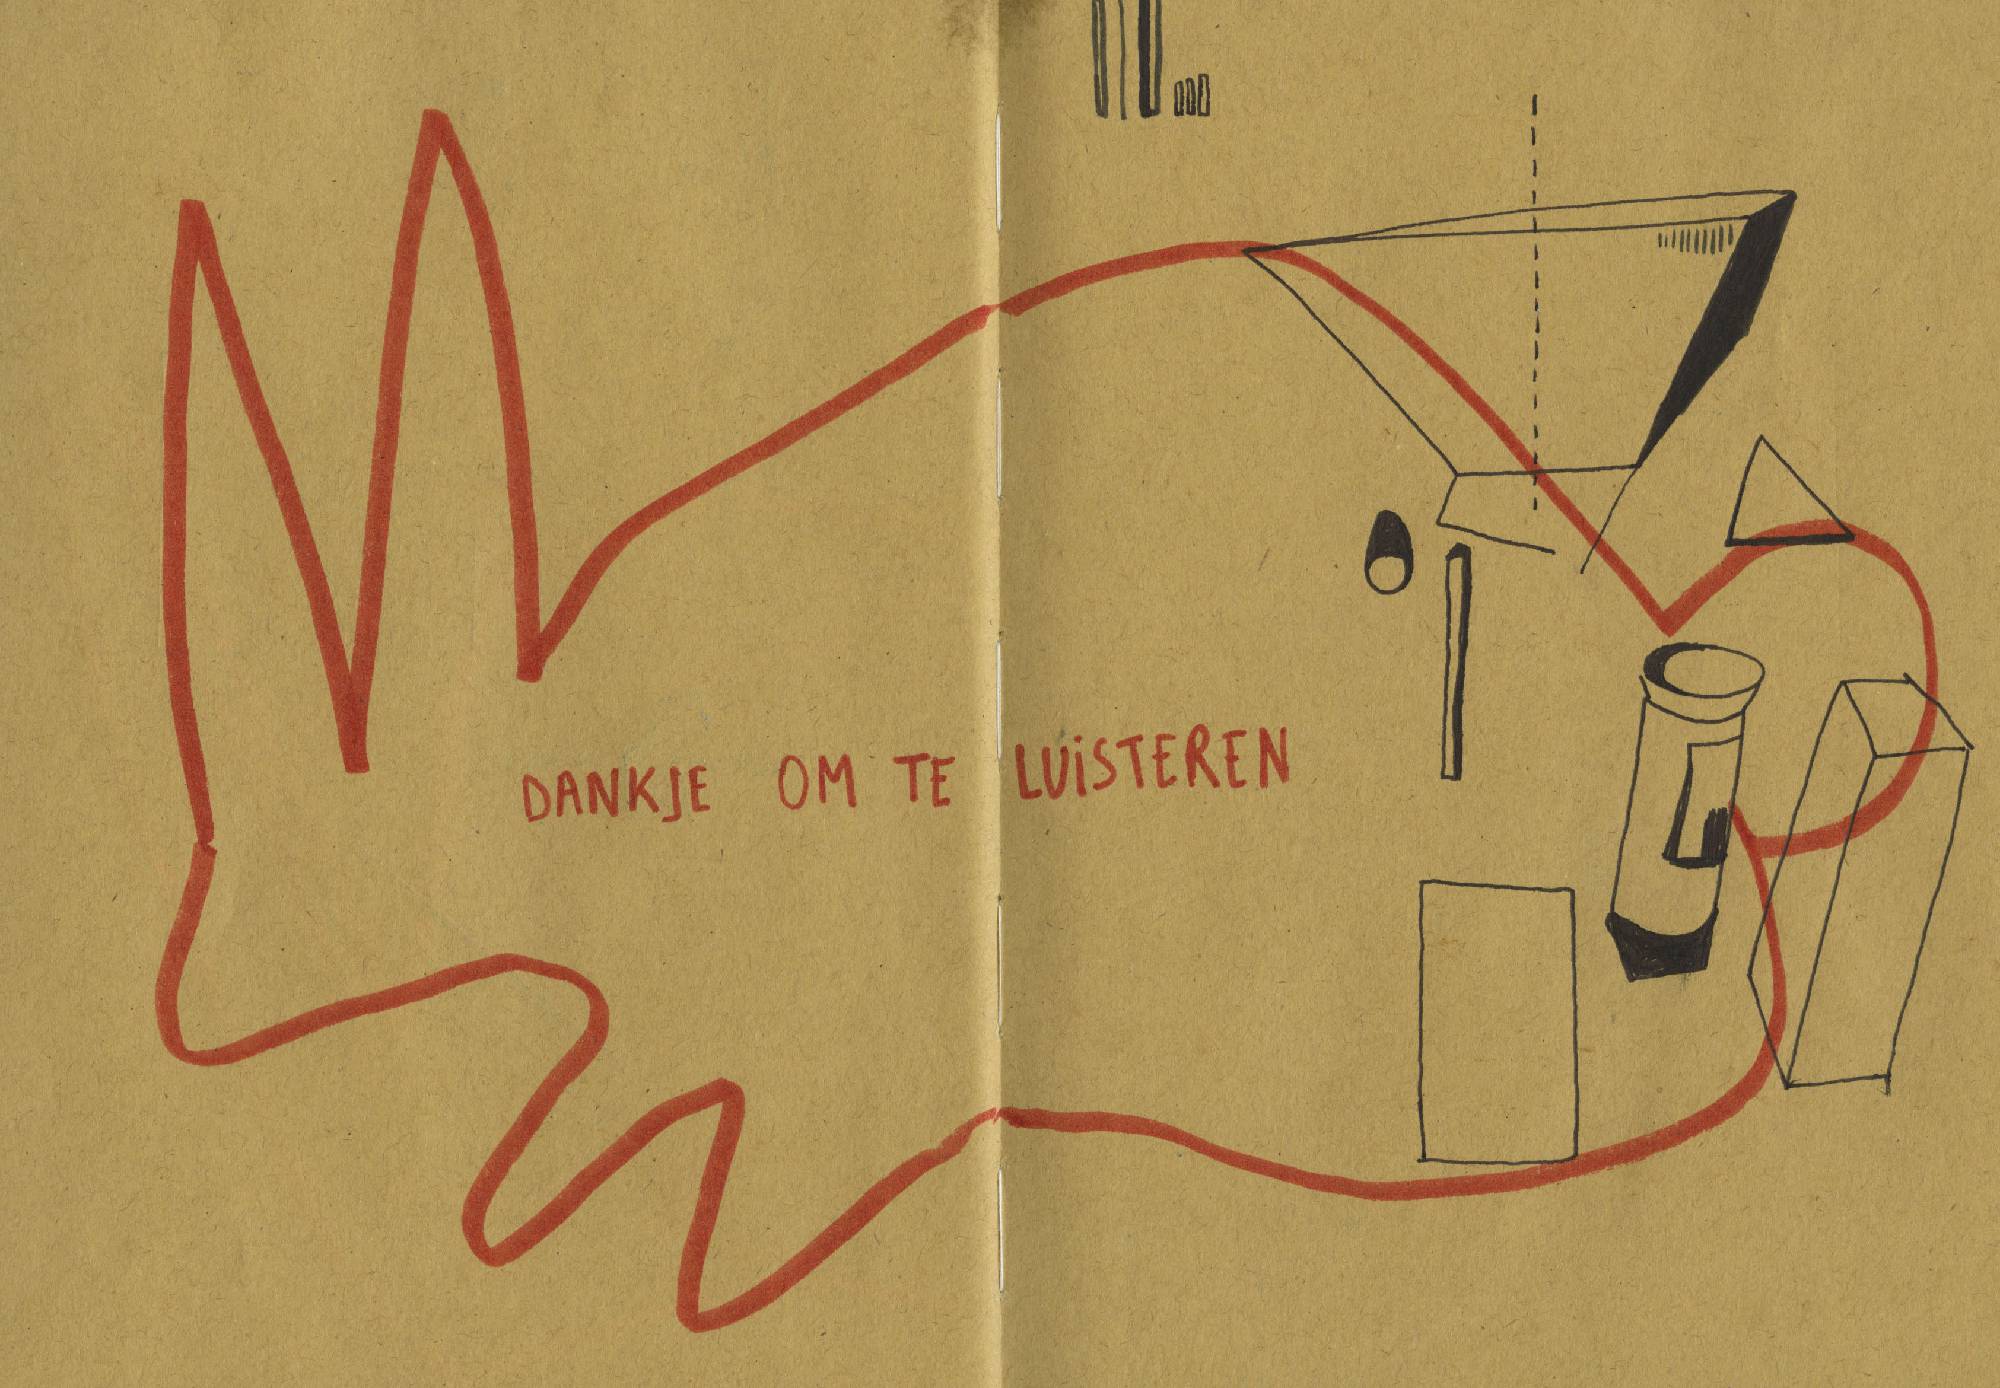 DANKJE OM TE LUiSTEREN